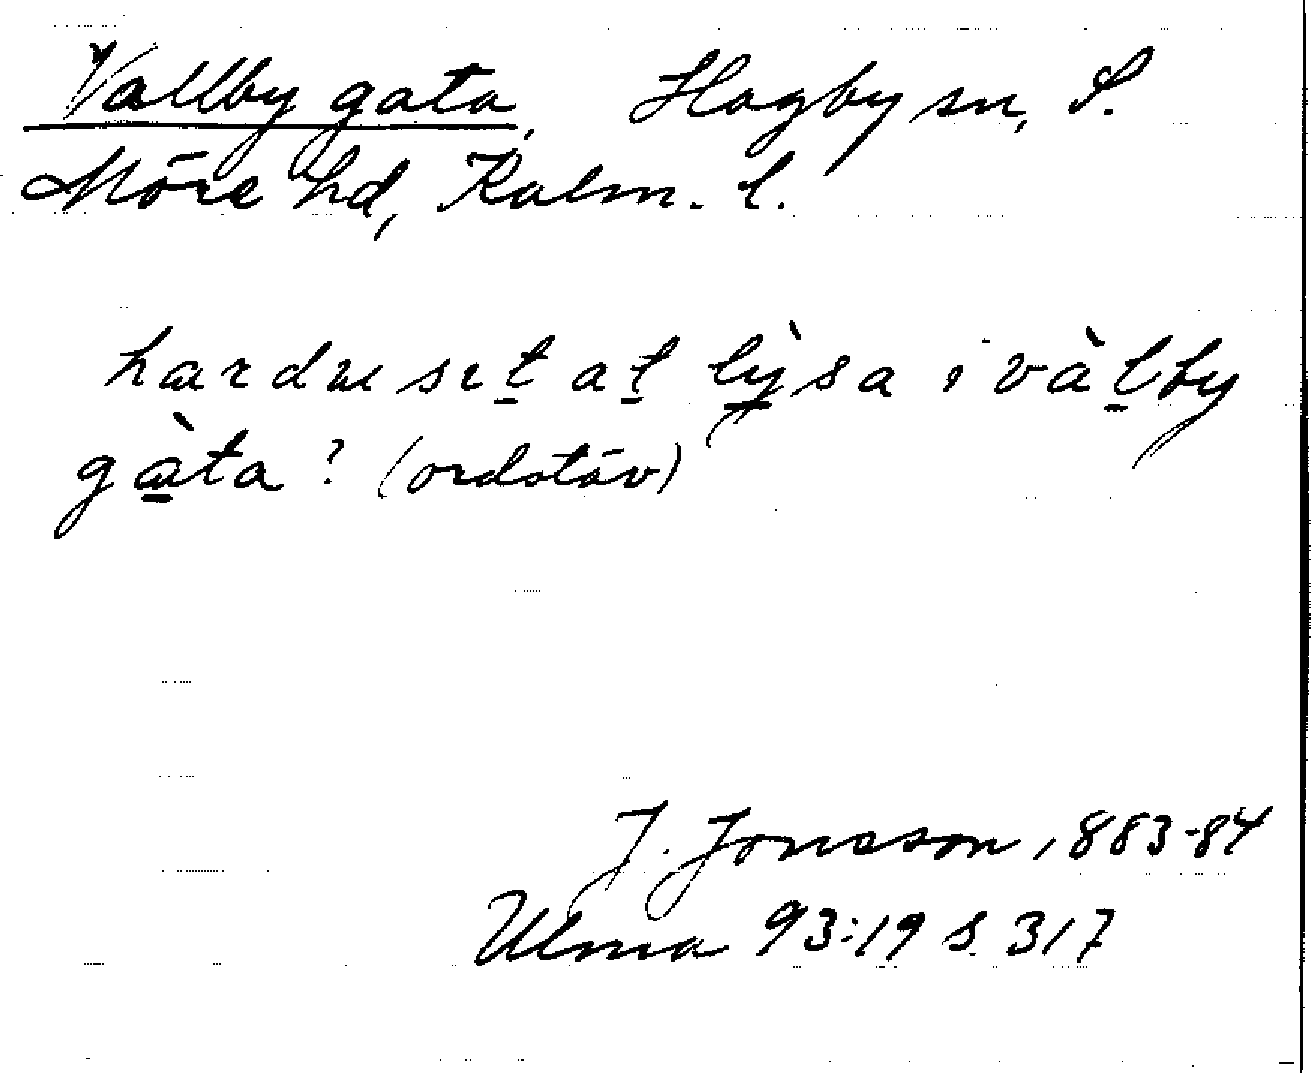 Vallby gata, Hagby sn, S.
Möre hd, Kalm. l.
hardu set at lỳsa i vàlby
gàta? (ordstäv)
J. Jonsson, 1883-84
Ulma 93:19 s. 317